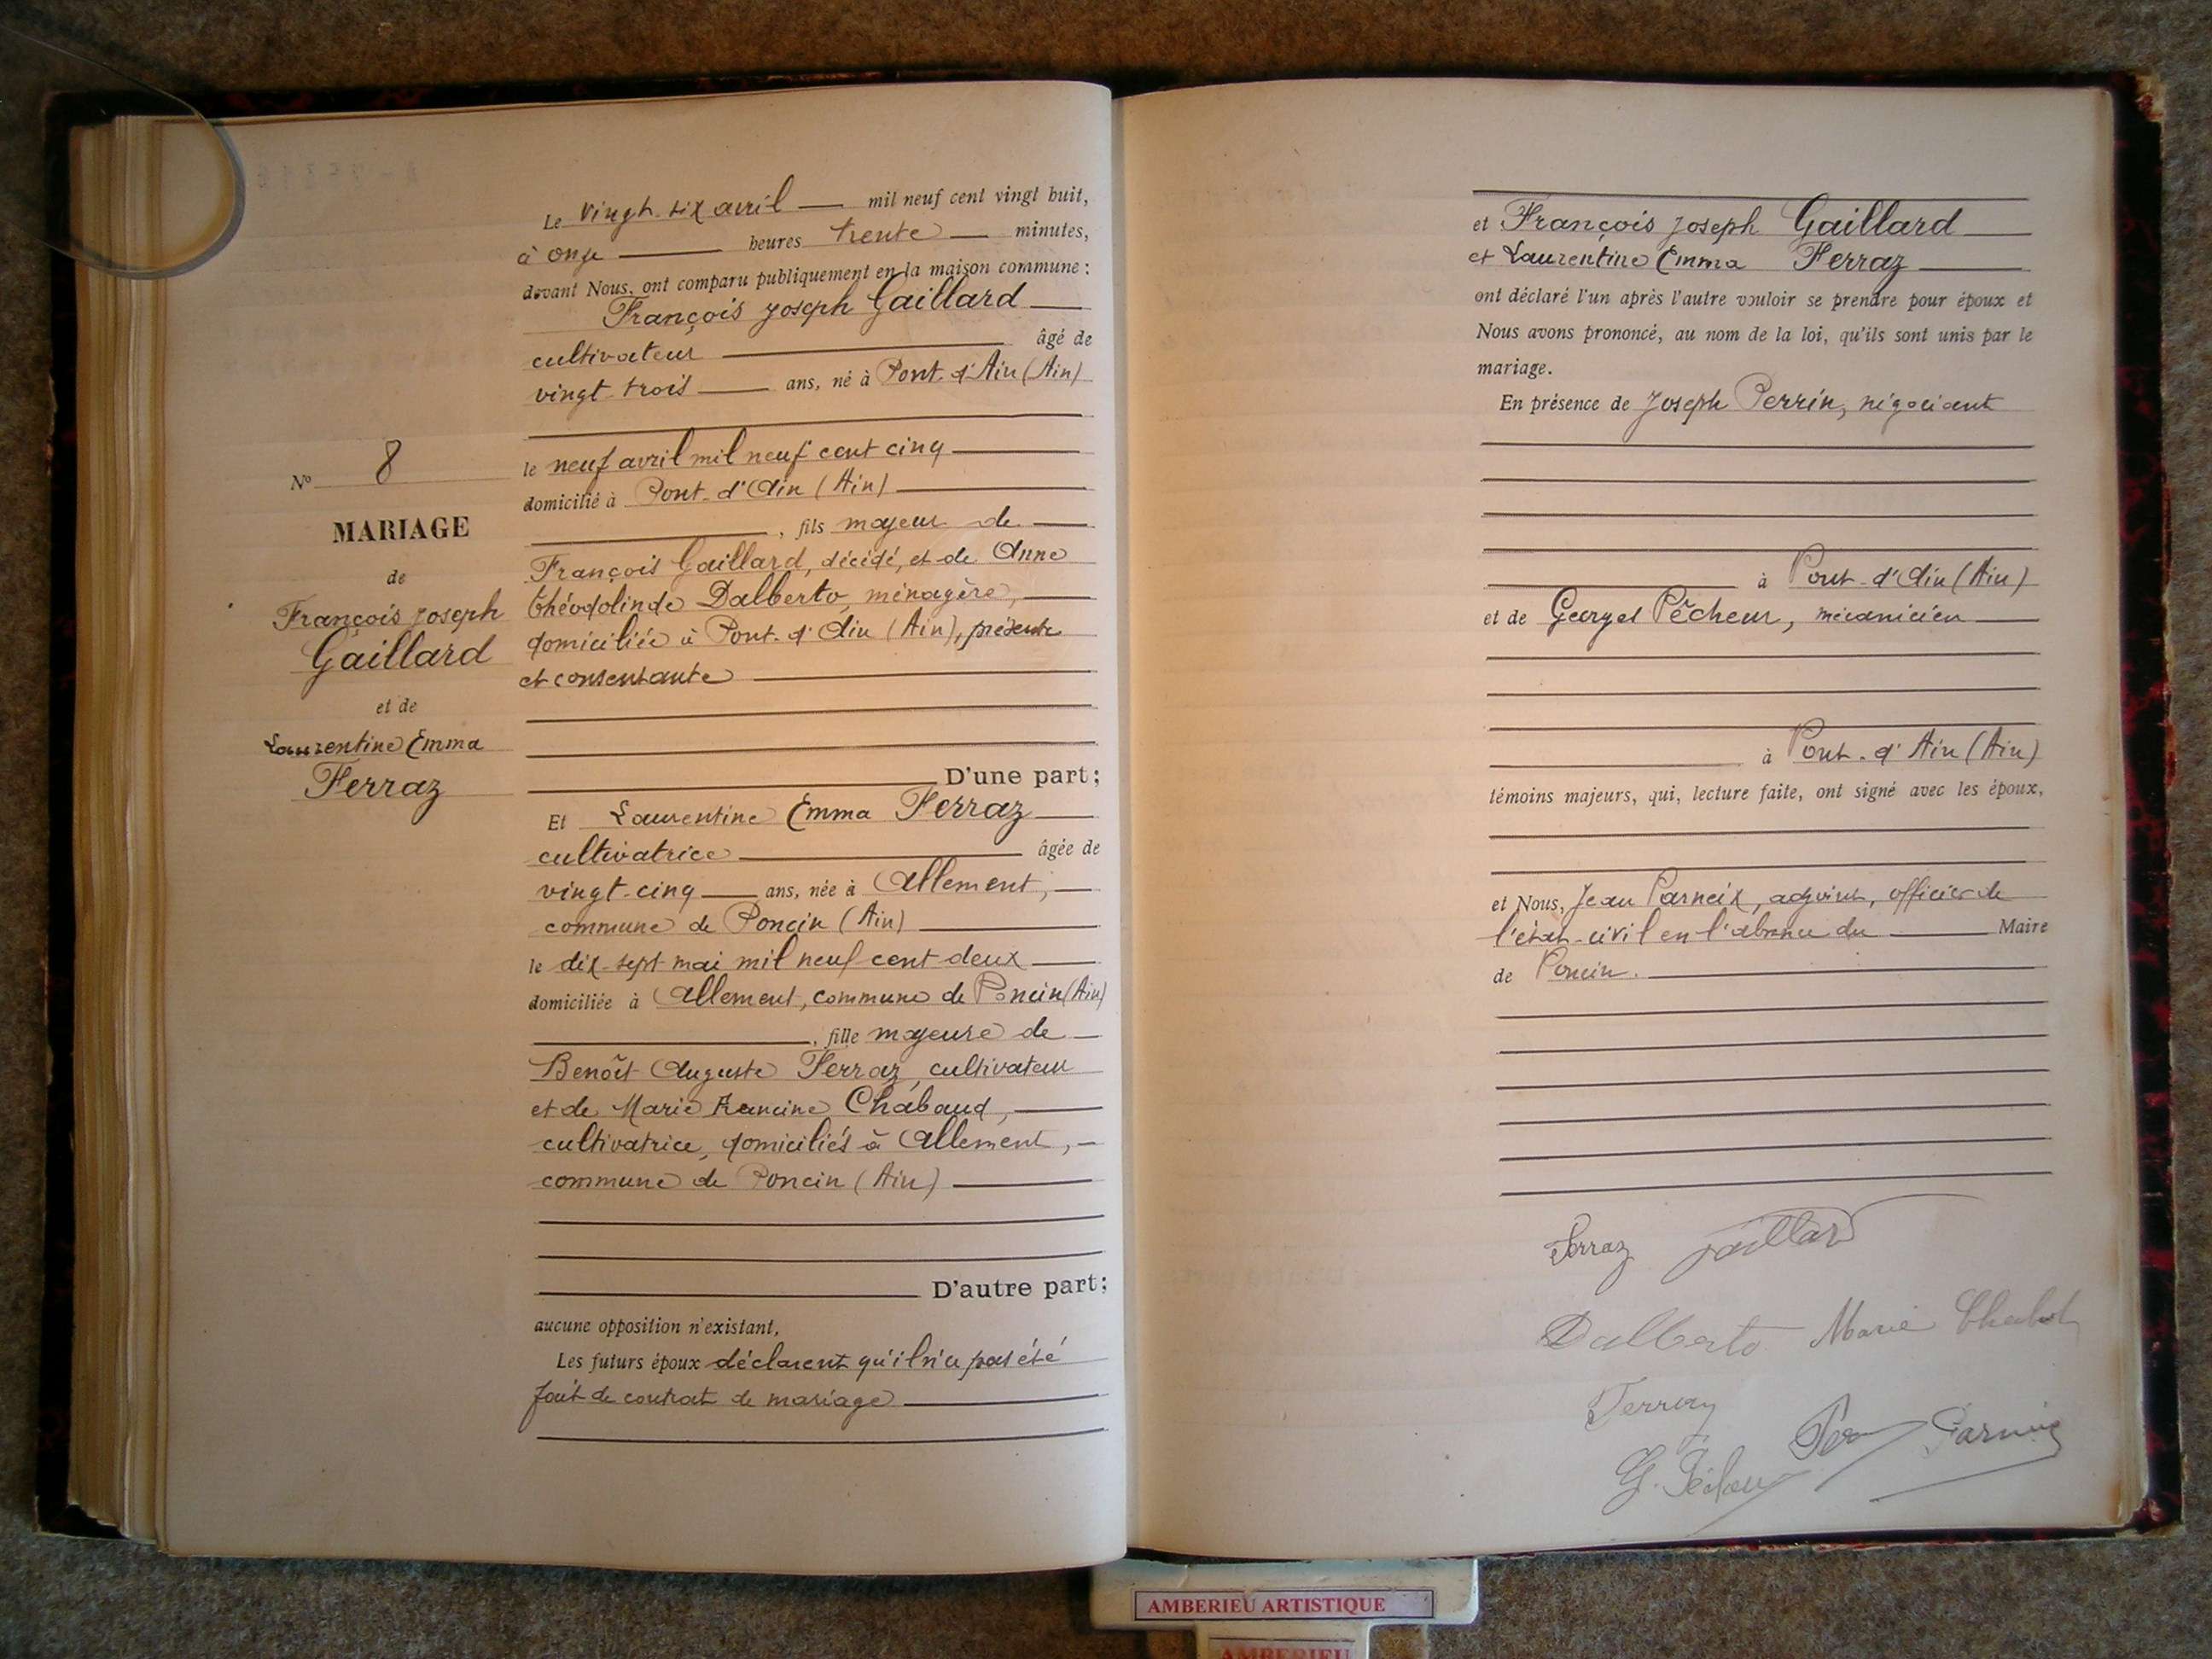 Le vingt-six avril — mil neuf cent vingt huit,
à onze — heures trente — minutes,
devant Nous, ont comparu publiquement en la maison commune :
François Joseph Gaillard
cultivateur — âgé de
vingt-trois — ans, né à Pont-d'Ain (Ain)
le neuf avril mil neuf cent cinq
domicilié à Pont-d'Ain (Ain)
, fils majeur de
François Gaillard, décédé, et de Anne
Théodolinde Dalberto, ménagère,
domiciliée à Pont-d'Ain (Ain), présente
et consentante
D'une part ;
Et Laurentine Emma Ferraz
cultivatrice — âgée de
vingt-cinq — ans, née à Allement,
commune de Poncin (Ain)
le dix-sept mai mil neuf cent deux
domiciliée à Allement, commune de Poncin (Ain)
, fille majeure de
Benoît Auguste Ferraz, cultivateur
et de Marie Francine Chabaud,
cultivatrice, domiciliés à Allement,
commune de Poncin (Ain)
D'autre part ;
aucune opposition n'existant,
Les futurs époux déclarent qu'il n'a pas été
fait de contrat de mariage
No 8
MARIAGE
de
François Joseph
Gaillard
et de
Laurentine Emma
Ferraz
et François Joseph Gaillard
et Laurentine Emma Ferraz
ont déclaré l'un après l'autre vouloir se prendre pour époux et
Nous avons prononcé, au nom de la loi, qu'ils sont unis par le
mariage.
En présence de Joseph Perrin, négociant
à Pont-d'Ain (Ain)
et de Georges Pêcheur, mécanicien
à Pont-d'Ain (Ain)
témoins majeurs, qui, lecture faite, ont signé avec les époux,
et Nous, Jean Parneix, adjoint, officier de
l'état-civil en l'absence du — Maire
de Poncin.
Ferraz Gaillard
Dalberto Marie
Ferraz
G. Pêcheur Parneix
AMBERIEU ARTISTIQUE
AMBERIEU